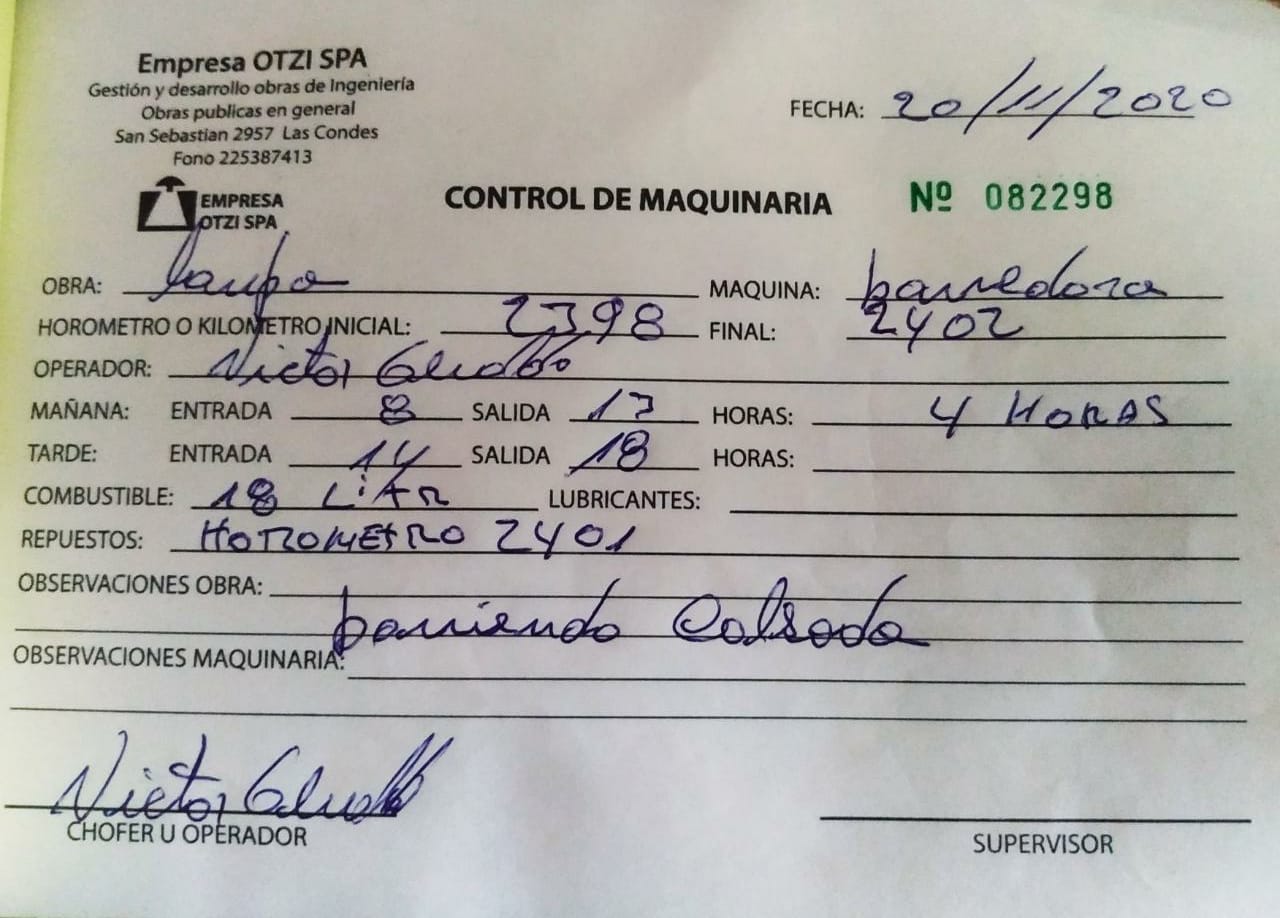 Empresa OTZI SPA
Gestión y desarrollo obras de Ingeniería
Obras publicas en general
San Sebastian 2957 Las Condes
Fono 225387413
FECHA: 20/11/2020
EMPRESA
OTZI SPA
CONTROL DE MAQUINARIA Nº 082298
OBRA: MAQUINA: barredora
HOROMETRO O KILOMETRO INICIAL: 2398 FINAL: 2402
OPERADOR: Victor
MAÑANA: ENTRADA 8 SALIDA 13 HORAS: 4 HORAS
TARDE: ENTRADA 14 SALIDA 18 HORAS:
COMBUSTIBLE: 18 LiTR LUBRICANTES:
REPUESTOS: HOROMETRO 2401
OBSERVACIONES OBRA:
barriendo Calsada
OBSERVACIONES MAQUINARIA:
Victor
CHOFER U OPERADOR
SUPERVISOR